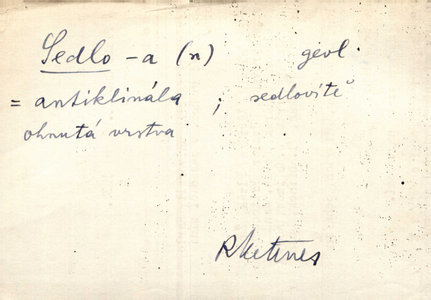 Sedlo -a (n) geol.
= antiklinála ; sedlovitě
ohnutá vrstva